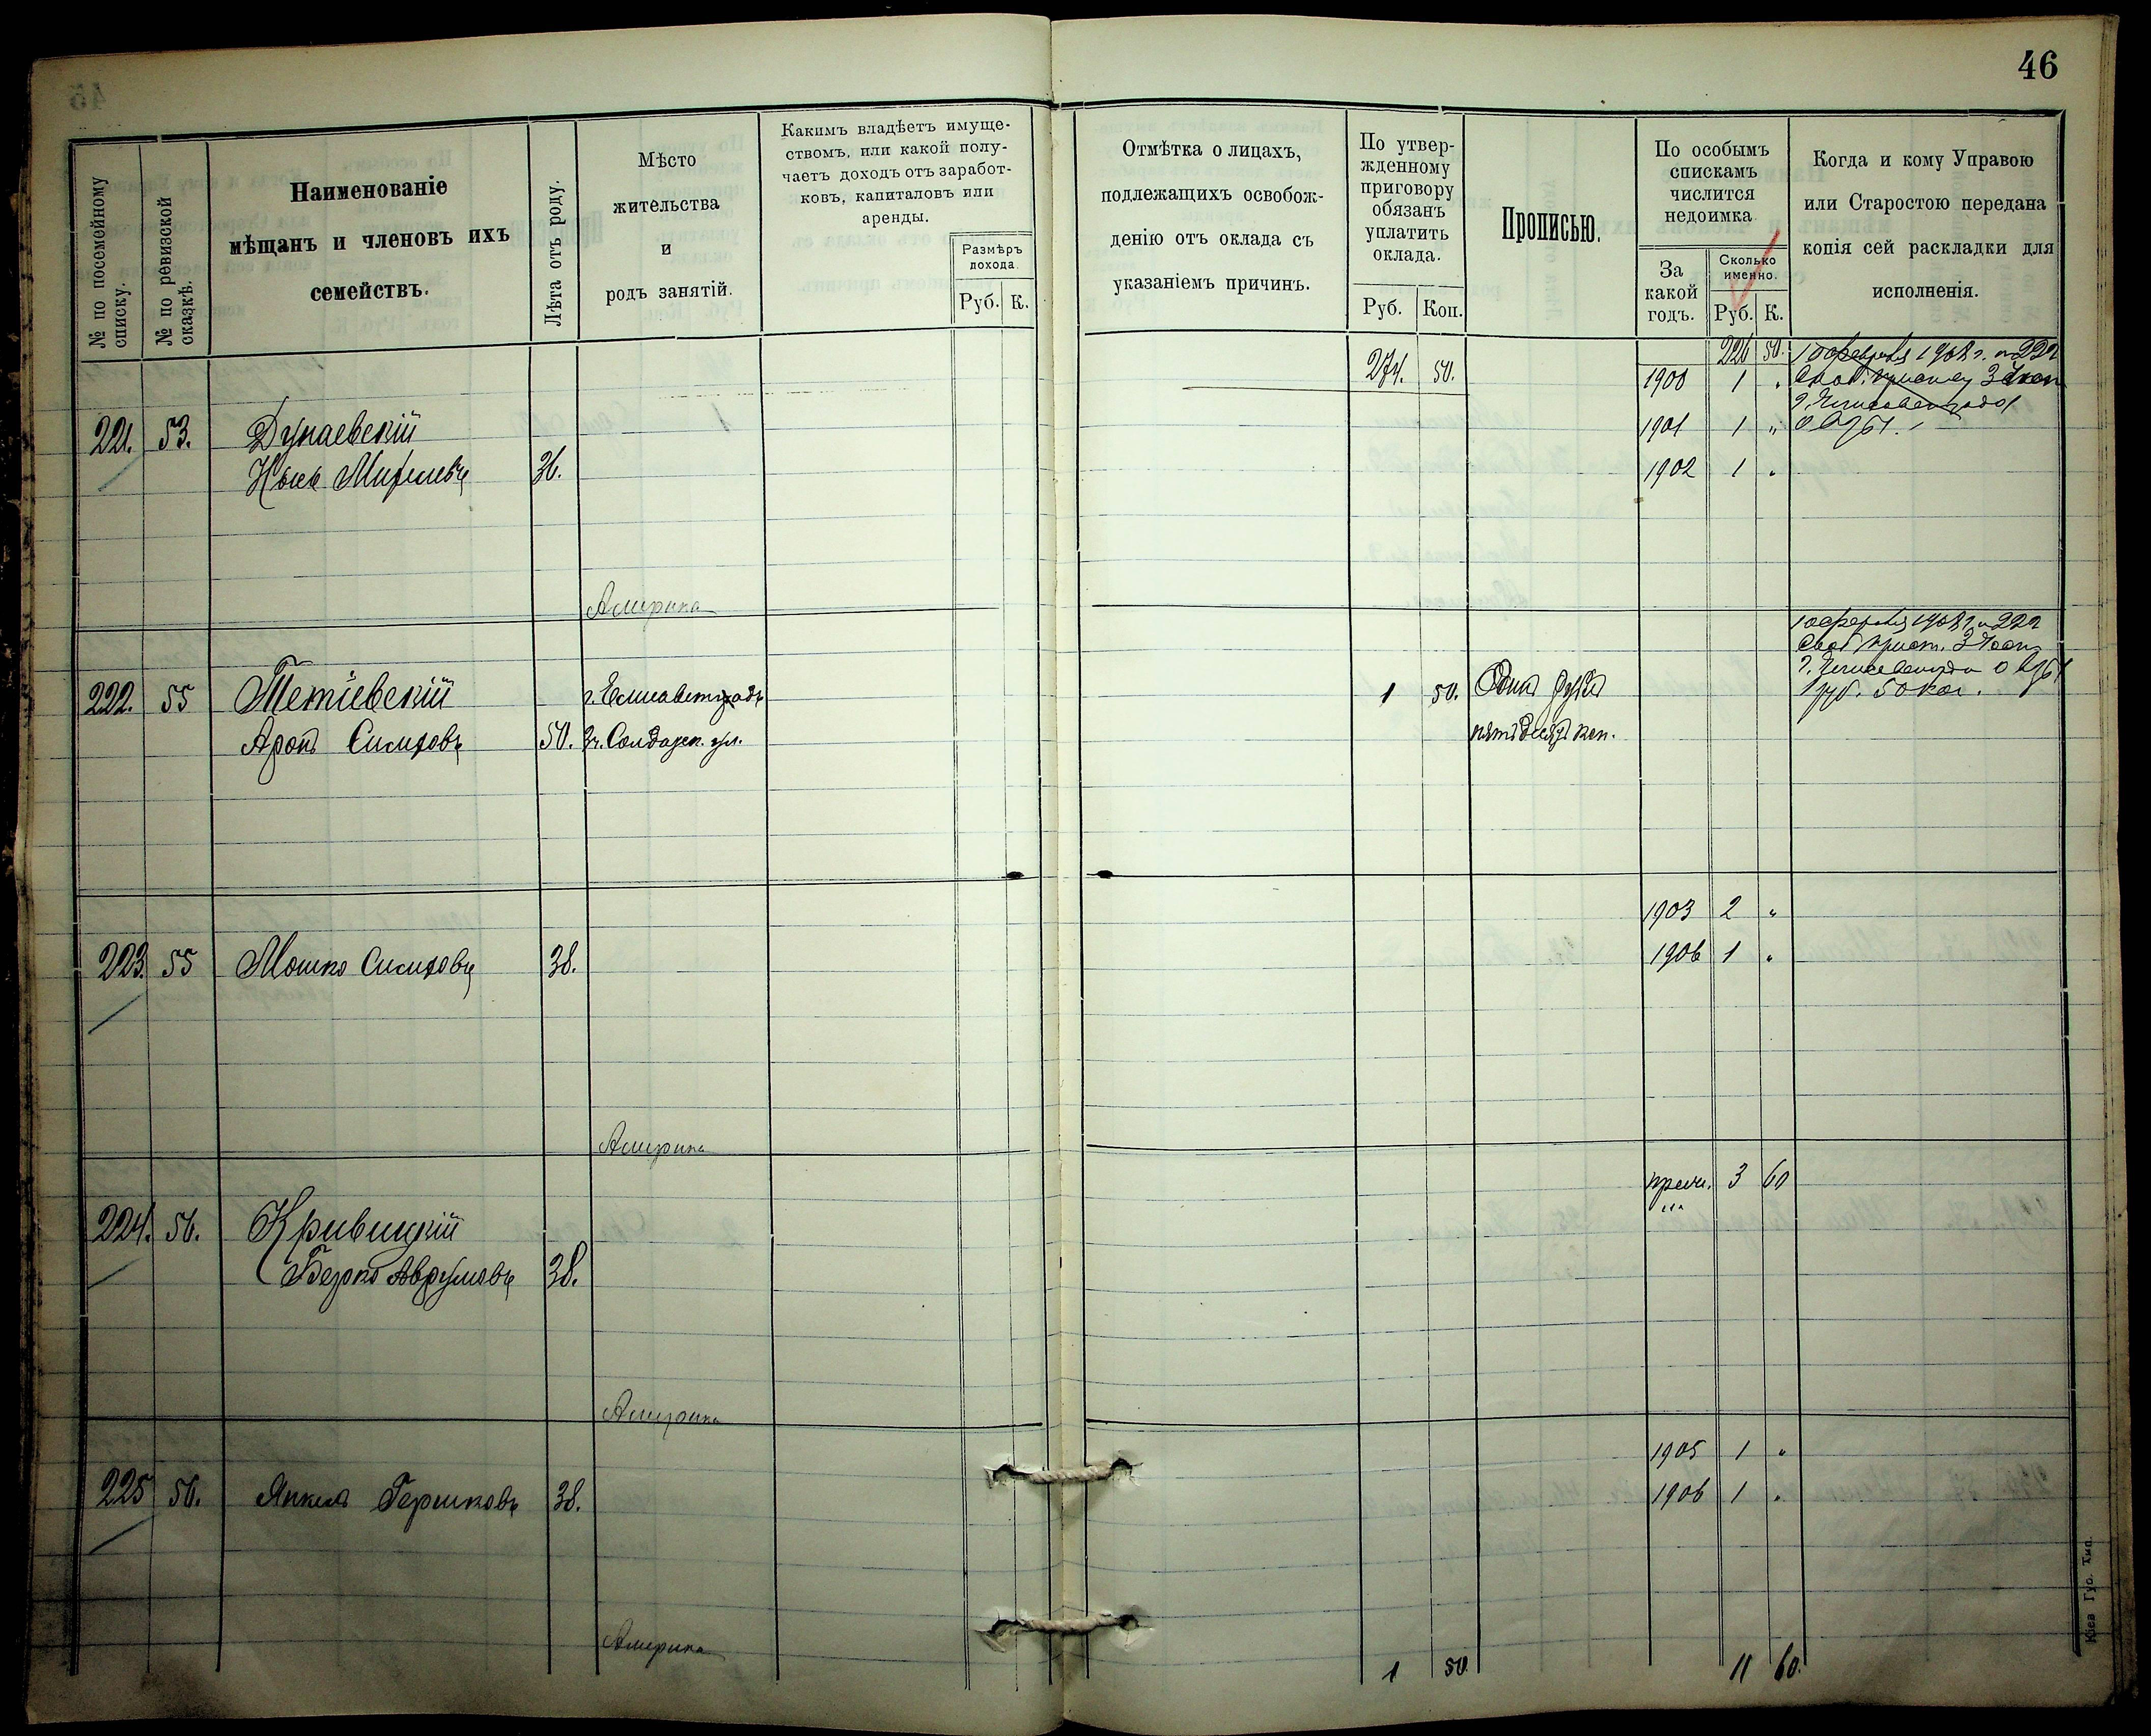 46
№ по посемейному списку.
№ по ревизской сказкѣ.
Наименованіе
мѣщанъ и членовъ ихъ
семействъ.
Лѣта отъ роду.
Мѣсто
жительства
и
родъ занятій.
Какимъ владѣетъ имуще-
ствомъ, или какой полу-
чаетъ доходъ отъ заработ-
ковъ, капиталовъ или
аренды.
Размѣръ
дохода.
Руб. К.
Отмѣтка о лицахъ,
подлежащихъ освобож-
денію отъ оклада съ
указаніемъ причинъ.
По утвер-
жденному
приговору
обязанъ
уплатить
оклада.
Руб. Коп.
Прописью.
По особымъ
спискамъ
числится
недоимка
За
какой
годъ.
Сколько
именно.
Руб. К.
Когда и кому Управою
или Старостою передана
копія сей раскладки для
исполненія.
274. 50.
226 50.
10 февраля 1908 г. № 222
1900 1 "
г. Елисаветграда
221. 53. Дунаевскій
1901 1 "
36.
1902 1 "
Америка
10 февраля 1908 г. № 222
г. Елисаветграда о взы
222. 55 Тетіевскій г. Елисаветградъ 1 50. Одинъ рубль
1 руб. 50 коп.
Аронъ Симховъ 50. ул. пятьдесятъ коп.
1903 2 "
223. 55 Мошко Симховъ 38. 1906 1 "
Америка
3 60
224. 56. Кривицкій
Берко Аврумовъ 38.
Америка
1905 1 "
225 56. Янкель Гершковъ 38. 1906 1 "
Америка
1 50 11 60.
Кіев. Губ. Тип.